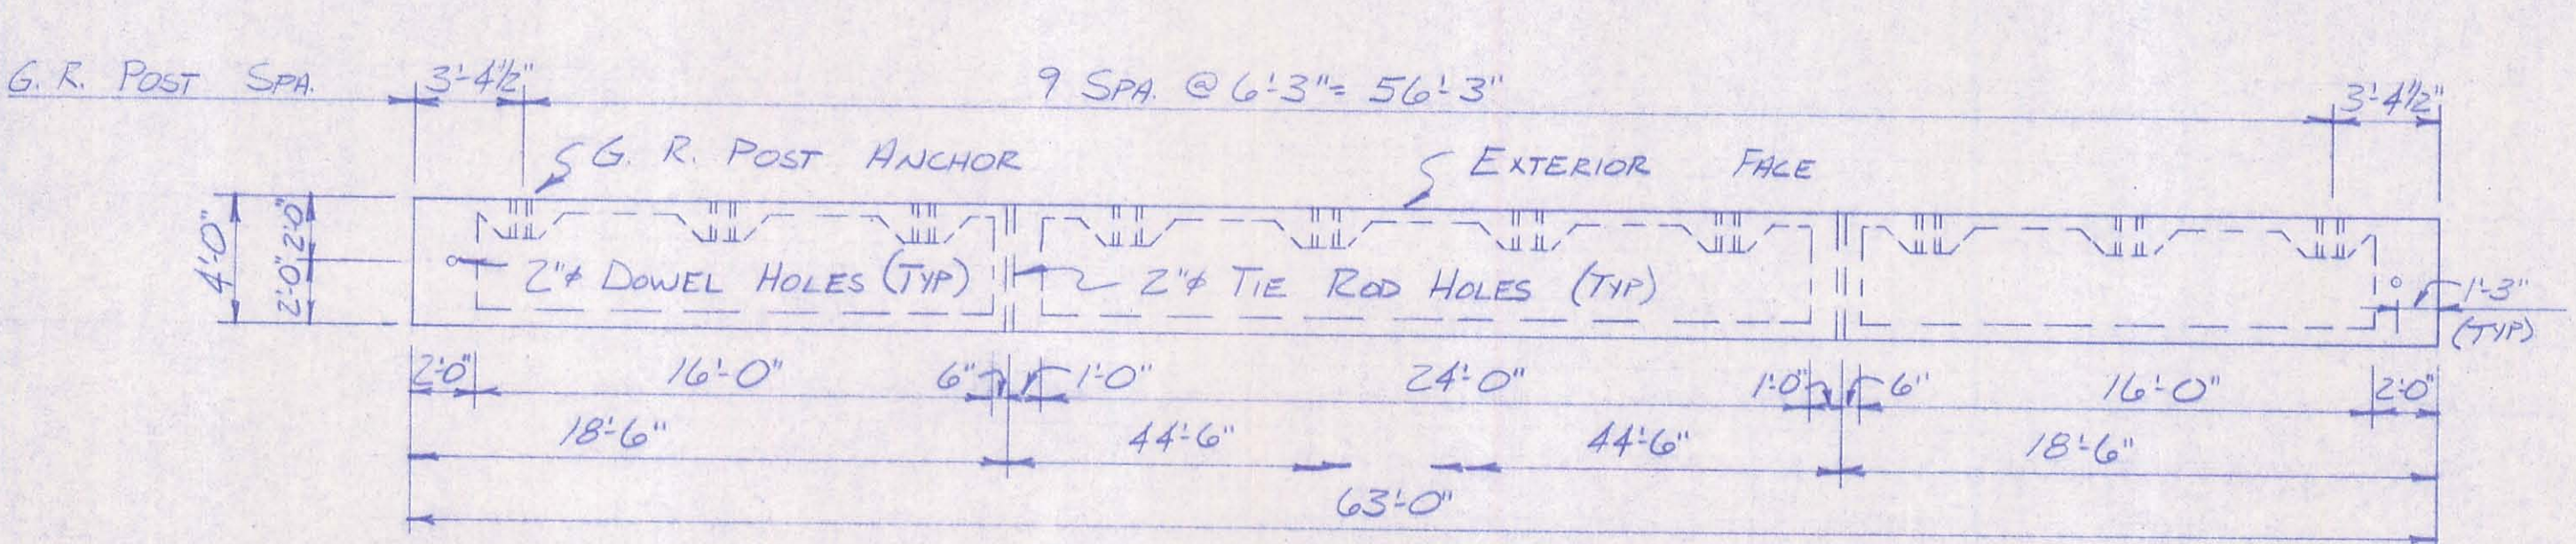 G. R. POST SPA.
3'-4½"
9 SPA. @ 6'-3" = 56'-3"
3'-4½"
G. R. POST ANCHOR
EXTERIOR FACE
4'-0"
2'-0"
2'-0"
2"ϕ DOWEL HOLES (TYP)
2"ϕ TIE ROD HOLES (TYP)
1'-3"
(TYP)
2'-0"
16'-0"
6"
1'-0"
24'-0"
1'-0"
6"
16'-0"
2'-0"
18'-6"
44'-6"
44'-6"
18'-6"
63'-0"